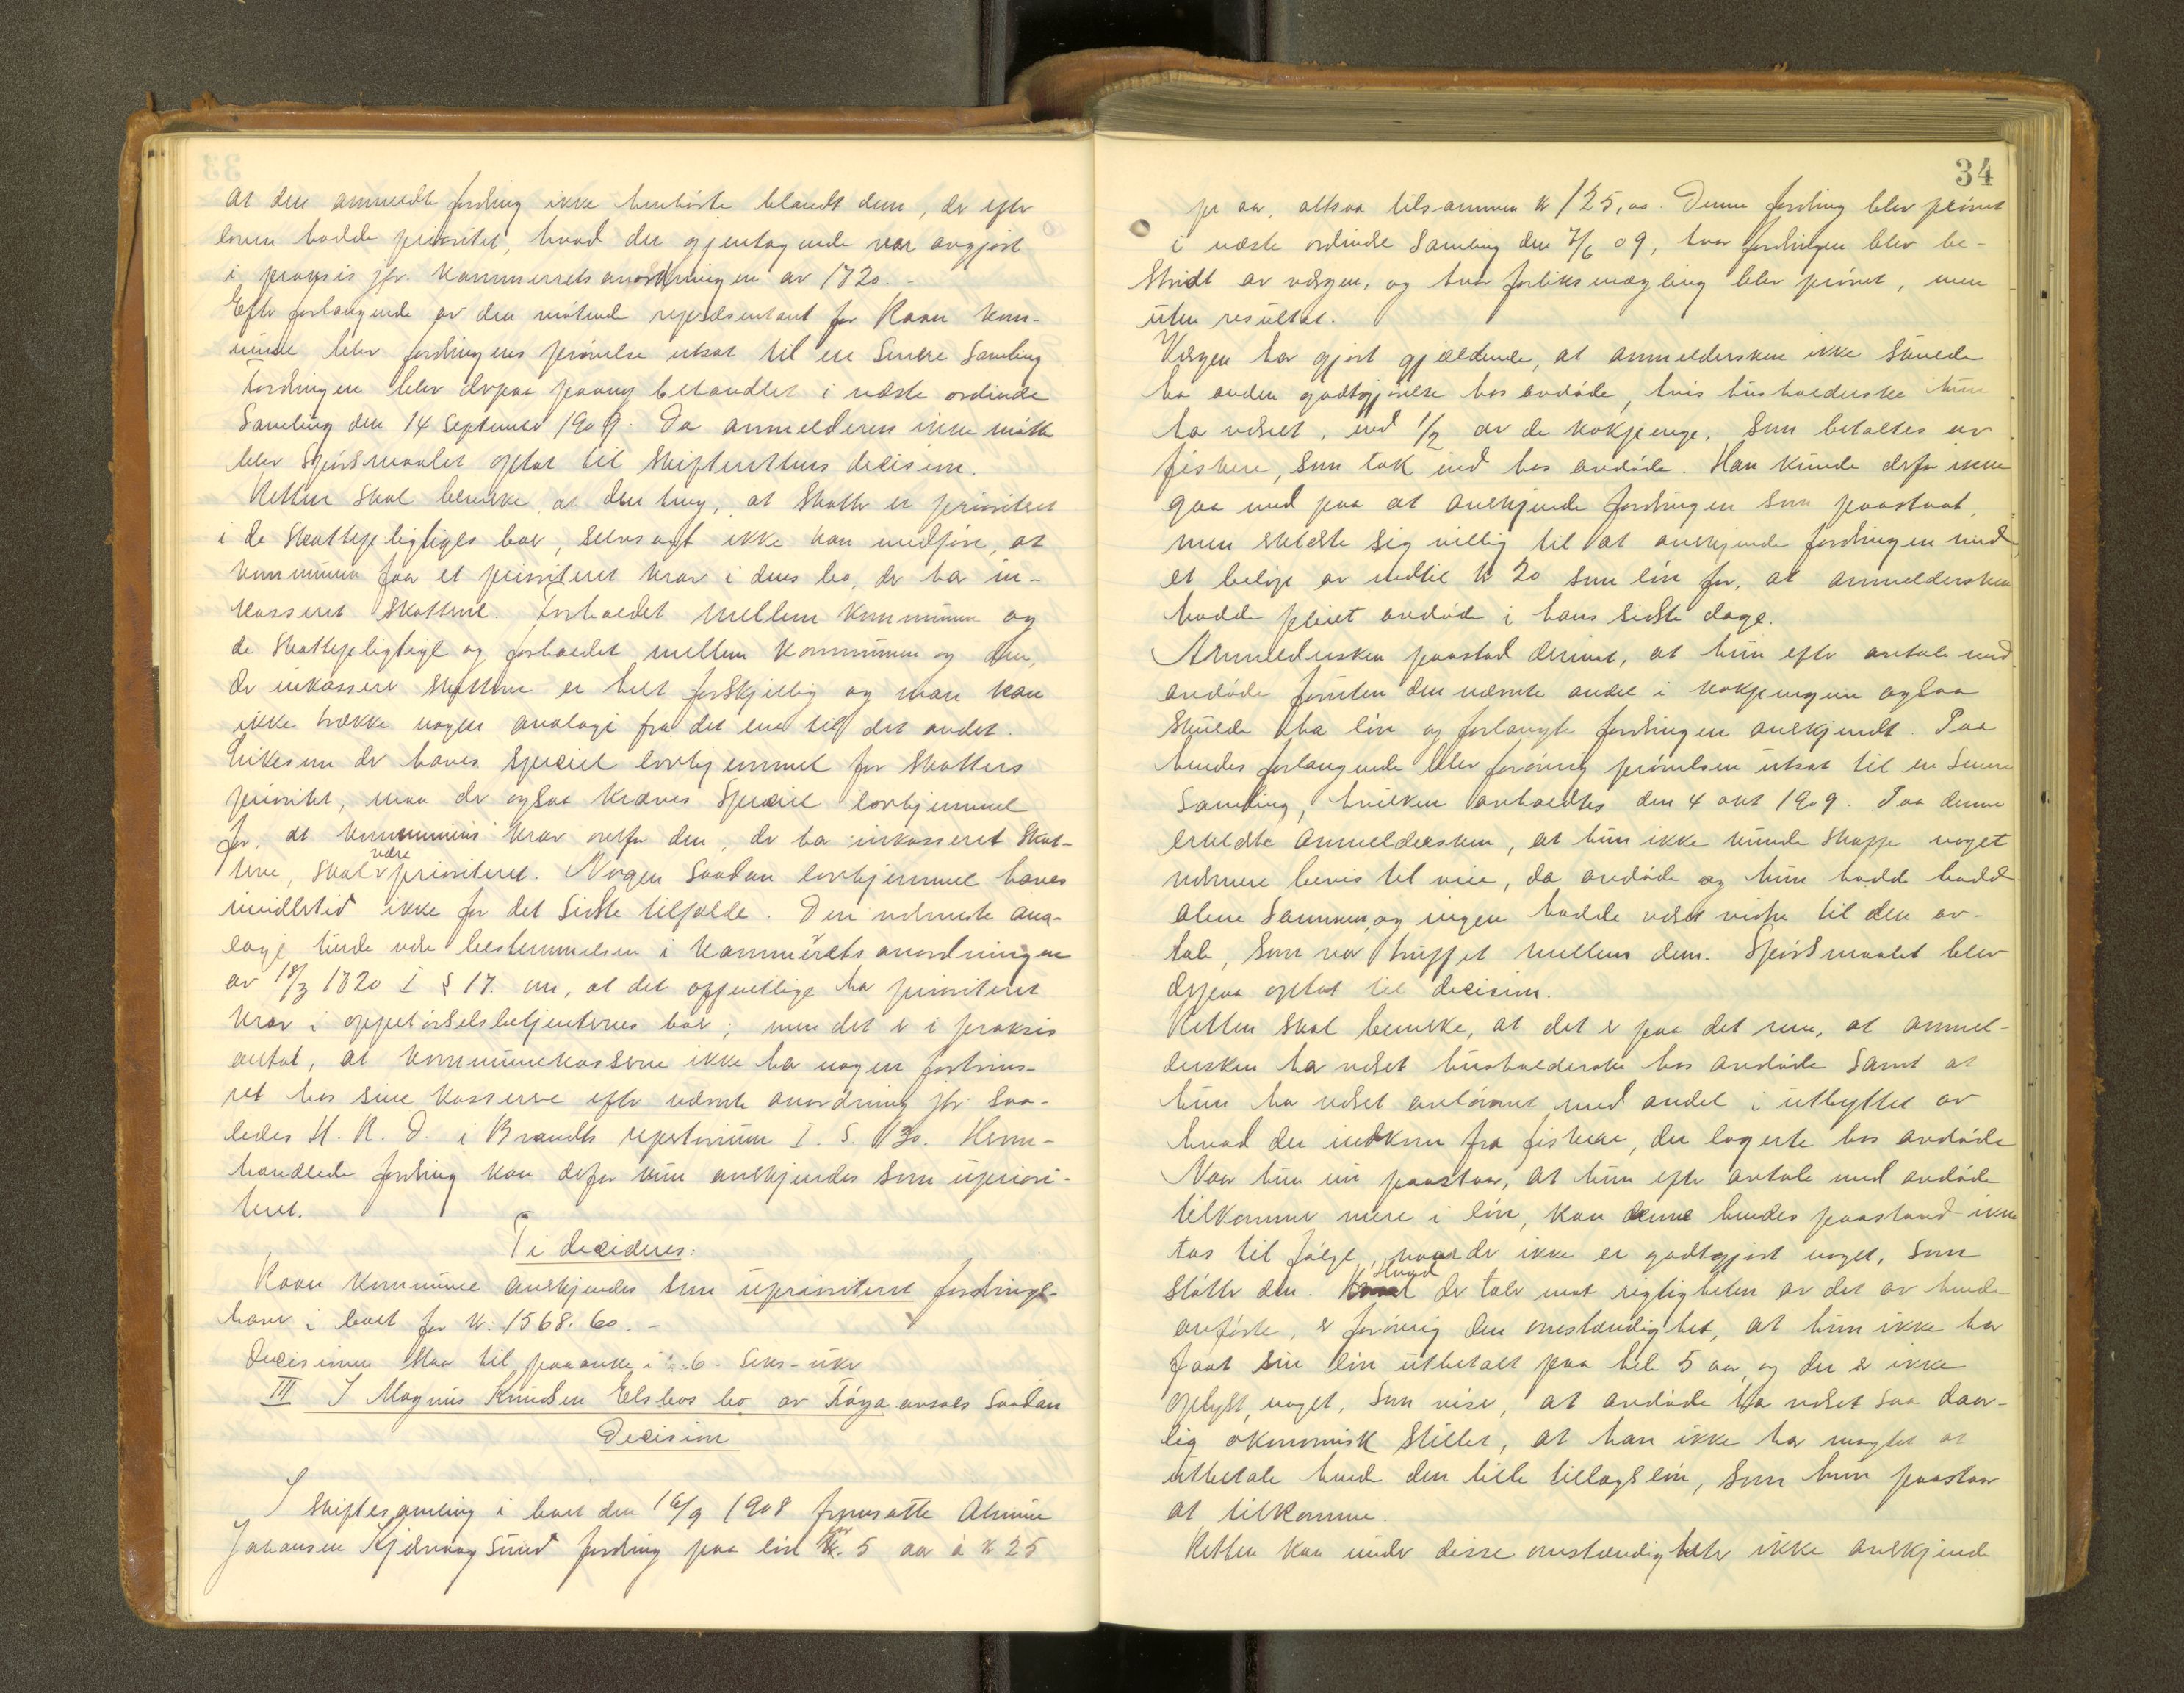 at den anmeldte fordring ikke henhørte blandt dem, der efter
loven hadde prioritet, hvad der gjentagende var avgjort
i praxis jfr. Kammerretsanordningen av 1720. -
Efter forlangende av den møtende repræsentant for Raan kom-
mune blev fordringens prøvelse utsat til en senere samling
Fordringen blev derpaa paany behandlet i næste ordinære
samling den 14 September 1909. Da anmelderen ikke møtte
blev spørsmaalet optat til skifterettens decision.
Retten skal bemerke, at den ting, at skatter er prioritert
i de skattepligtiges boer, selvsagt ikke kan medføre, at
kommunen faar et prioriteret krav i dens bo, der har in-
kasseret skattene. Forholdet mellem kommunen og
de skattepligtige og forholdet mellem kommunen og den,
der inkasserer skattene er helt forskjellig og man kan
ikke trække nogen analogi fra det ene til det andet.
Likesom der haves speciel lovhjemmel for skatters
prioritet, maa der ogsaa kræves speciel lovhjemmel
for, at kommunens krav overfor den, der har inkasseret skat-
tene, skal være prioriteret. Nogen saadan lovhjemmel haves
imidlertid ikke for det sidste tilfælde. Den nærmeste ana-
logi turde være bestemmelsen i Kammerretsanordningen
av 18/3 1720 I § 17. om, at det offentlige har prioriteret
krav i oppebørselsbetjentenes boer; men det er i praksis
antat, at kommunekasserne ikke har nogen fortrins-
ret hos sine kasserere efter nævnte anordning jfr. saa-
ledes H. R. D. i Brandts repertorium I. S. 30. Heom-
handlede fordring kan derfor kun anerkjendes som upriori-
teret.
Ti decideres:
Raan kommune anerkjendes som uprioriteret fordrings-
haver i boet for kr. 1568.60. -
Decisionen staar til paaanke i: 6 - seks - uker
III I Magnus Knudsen Elsbos bo av Frøya avsaes saadan
Decision
I skiftesamling i boet den 16/9 1908 fremsatte Almine
Johansen Kjervaagsund fordring paa løn for 5 aar à kr 25
34
pr aar, altsaa tilsammen kr 125,00. Denne fordring blev prøvet
i næste ordinære samling den 7/6 09, hvor fordringen blev be-
stridt av vergen, og hvor forliksmægling blev prøvet, men
uten resultat.
Vergen har gjort gjældende, at anmeldersken ikke skulde
ha anden godtgjørelse hos avdøde, hvis husholderske hun
har været, end 1/2 av de kokpenge, som betaltes av
fiskere, som tok ind hos avdøde. Han kunde derfor ikke
gaa med paa at anerkjende fordringen som paastaat,
men erklærte sig villig til at anerkjende fordringen med
et beløp av indtil kr 20 som løn for, at anmeldersken
hadde pleiet avdøde i hans sidste dage.
Anmeldersken paastod derimot, at hun efter avtale med
avdøde foruten den nævnte andel i kokpengene ogsaa
skulde ha løn og forlangte fordringen anerkjendt. Paa
hendes forlangende blev forøvrig prøvelsen utsat til en senere
samling, hvilken avholdtes den 4 okt 1909. Paa denne
erklærte anmeldersken, at hun ikke kunde skaffe noget
nærmere bevis til veie, da avdøde og hun hadde bodd
alene sammen, og ingen hadde været vidne til den av-
tale, som var truffet mellem dem. Spørsmaalet blev
derpaa optat til decision.
Retten skal bemerke, at det er paa det rene, at anmel-
dersken har været husholderske hos avdøde samt at
hun har været avlønnet med andel i utbyttet av
hvad der indkom fra fiskere, der logerte hos avdøde
Naar hun nu paastaar, at hun efter avtale med avdøde
tilkommer mere i løn, kan denne hendes paastand ikke
tas til følge, naar der ikke er godtgjort noget, som
støtter den. Hvad der taler mot rigtigheten av det av hende
anførte, er forøvrig den omstændighet, at hun ikke har
faat sin løn utbetalt paa hele 5 aar, og der er ikke
oplyst noget, som viser, at avdøde har været saa daar-
lig økonomisk stillet, at han ikke har magtet at
utbetale hende den lille tillægsløn, som hun paastaar
at tilkomme.
Retten kan under disse omstændigheter ikke anerkjende